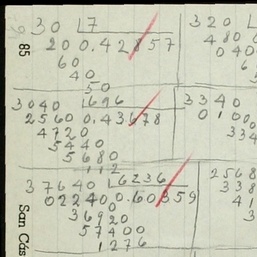 30 7
20 0.42857
60
40
50
3040 696
2560 0.43678
4720
5440
5680
112
37640 6236
02240 0.60359
36920
57400
1276
320
480
040
3340
0100
334
2568
338
41
3
85
San Cas